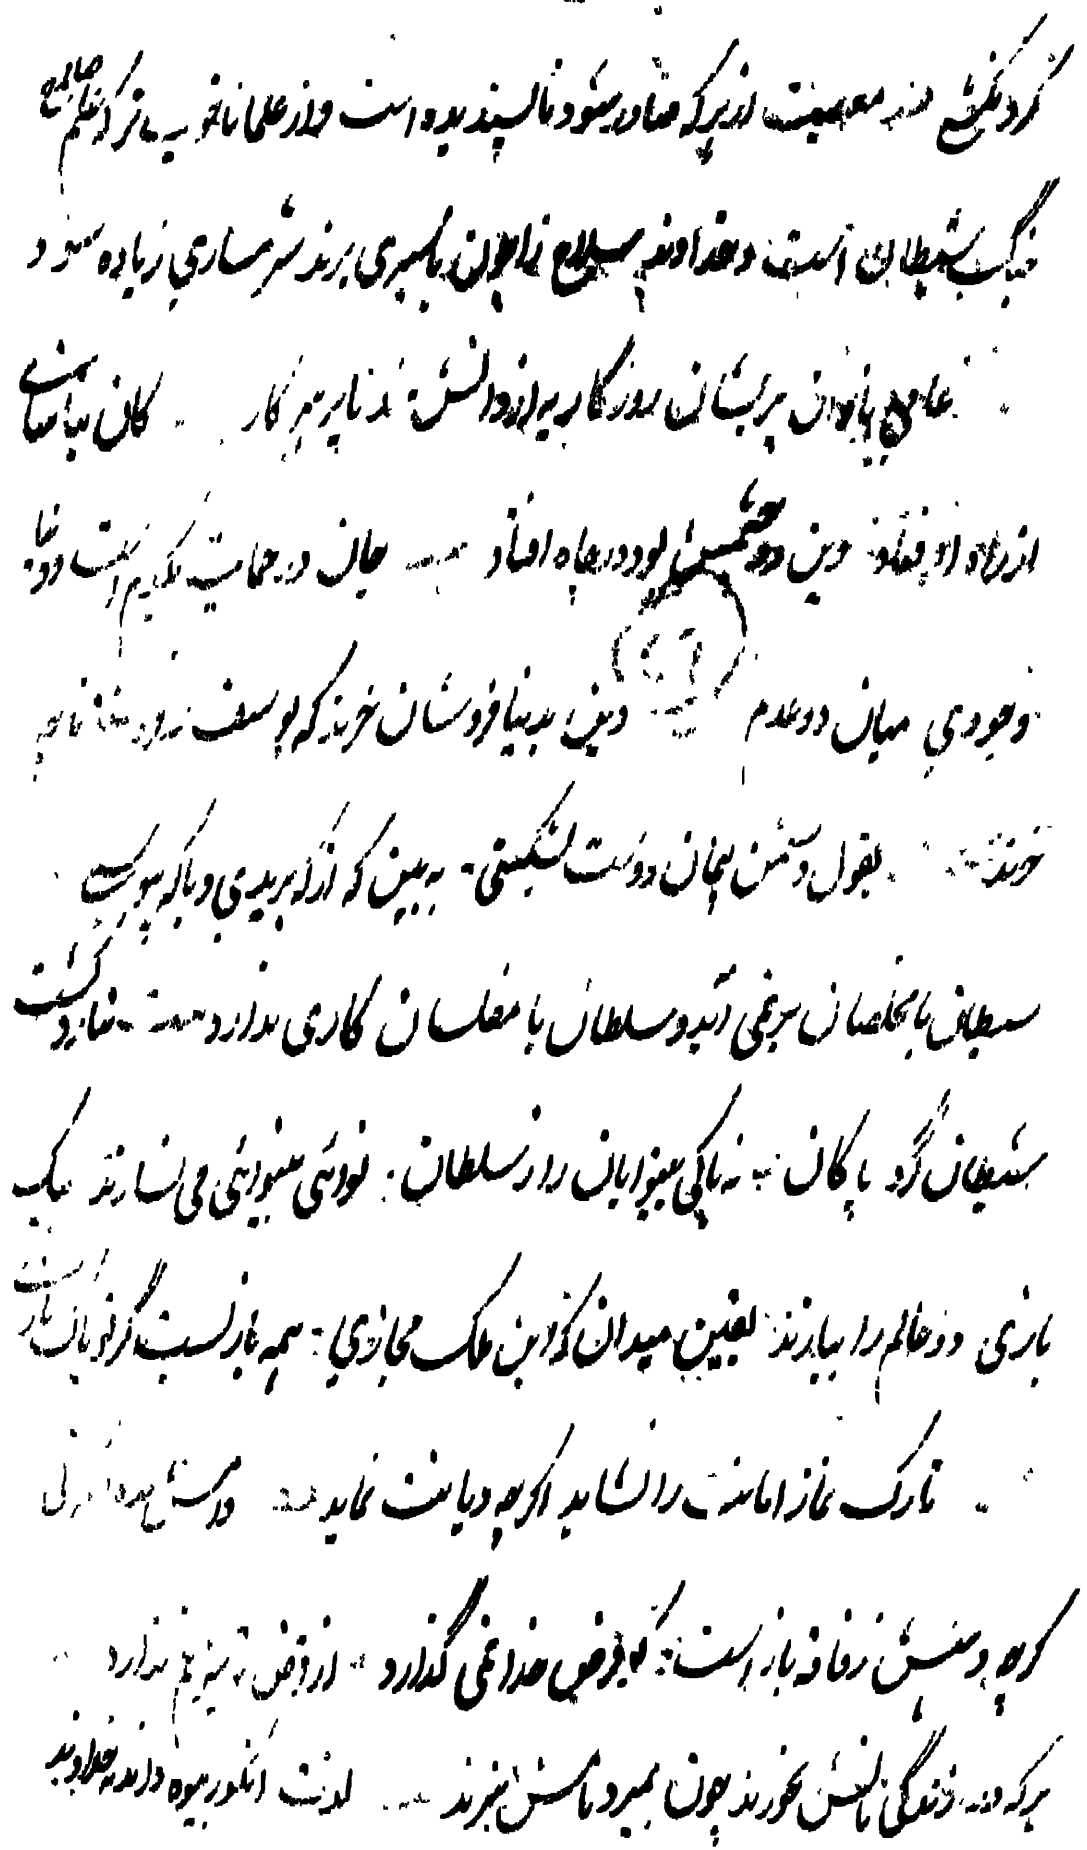 کرد نکشم معصیت از هرکه صادر شود ناپسندیده است و از علما ناخوب تر که علم سلاح
جنگ شیطان است و خداوند سلاح را چون باسیری برند شرمساری زیاده شود
عامی نادان پریشان روزگار به از دانشمند ناپرهیزگار کان بنابینائی
از راه اوفتاد وین دو چشمش بود و در چاه افتاد جان در حمایت یکدم است و دنیا
وجودی میان دو عدم دین بدنیا فروشان خرند که یوسف فروشند تا چه
خرند بقول دشمن پیمان دوست بشکستی به بین که از که بریدی و با که پیوستی
شیطان با مخلصان برنمی آید و سلطان با مفلسان کاری ندارد گشت
شیطان گرد پاکان نه باکی بینوایان را ز سلطان نودئی بینوائی می نسازند بیک
بازی دو عالم را ببازند یقین میدان که این ملک مجازی همه بازیست گر تو
تارک نماز امانت را نشاید اگرچه دیانت نماید
گرچه دهنش ز فاقه باز است کو فرض خدا نمی گذارد از قرض تو نیز غم ندارد
هرکه در زندگی نانش نخورند چون بمیرد نامش نبرند لذت انگور بیوه داند نه خداوند